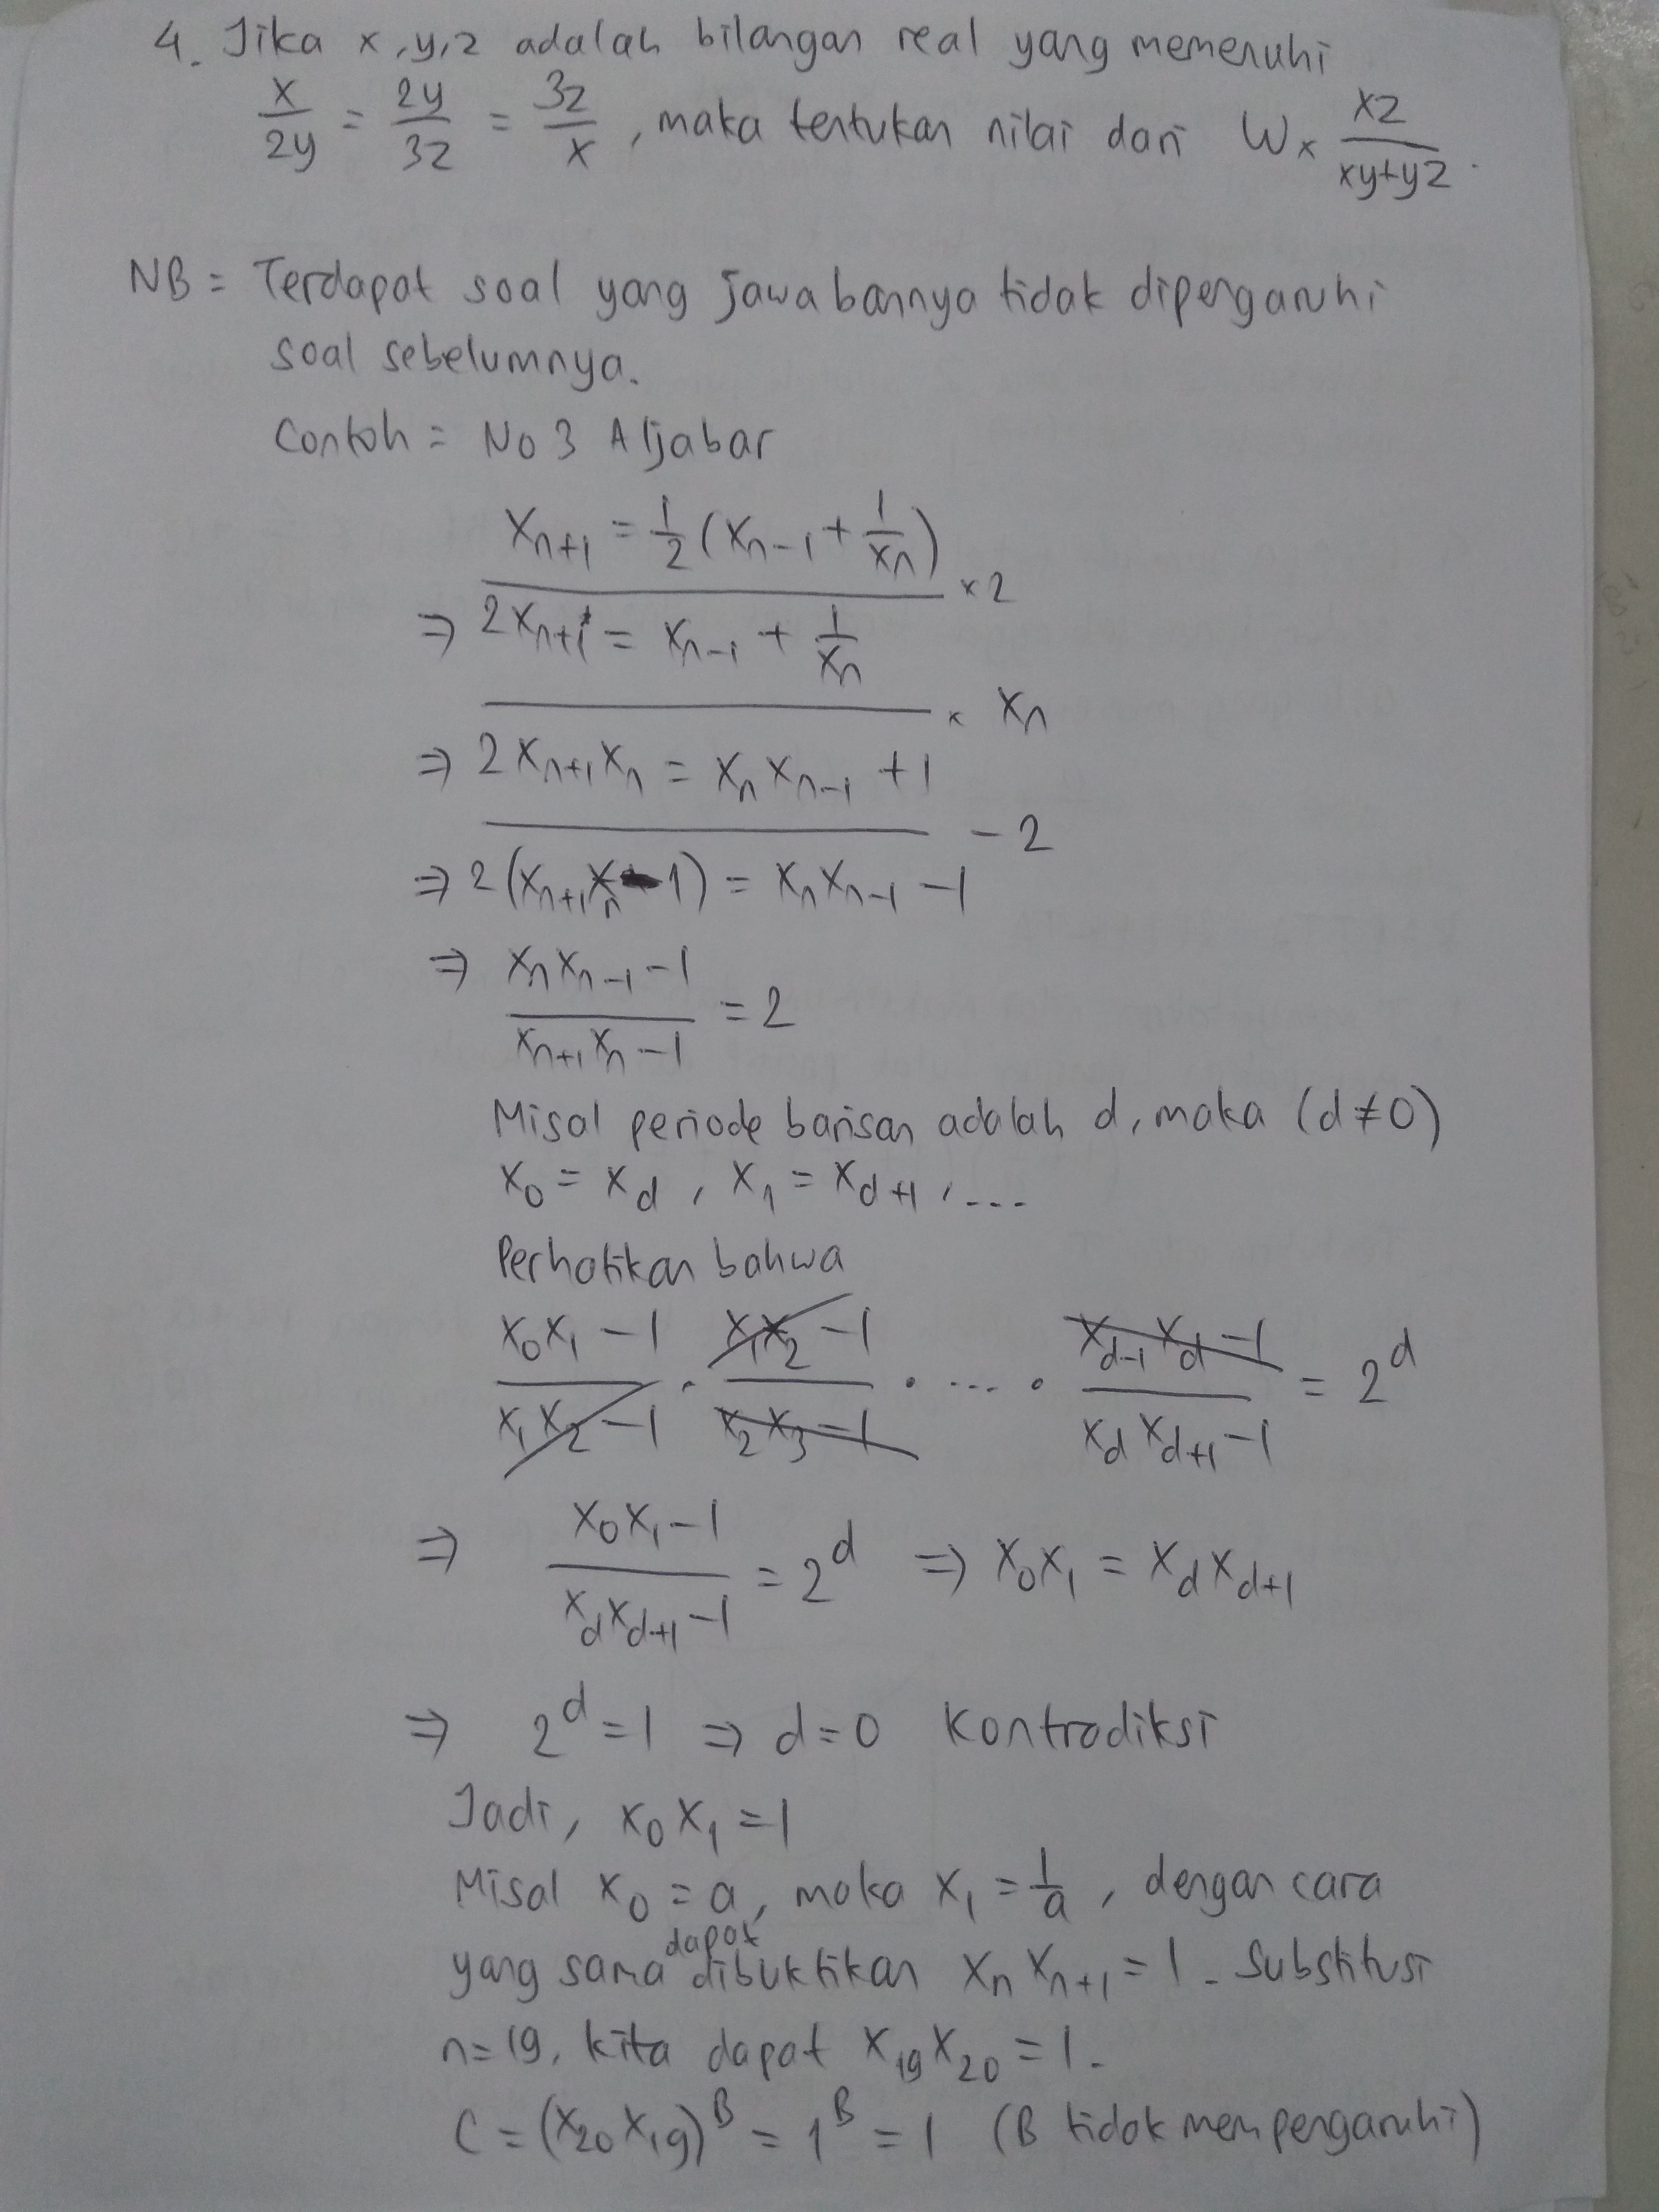 4. Jika x, y, z adalah bilangan real yang memenuhi
x/2y = 2y/3z = 3z/x, maka tentukan nilai dari W × xz/(xy+yz).
NB = Terdapat soal yang jawabannya tidak dipengaruhi
soal sebelumnya.
Contoh = No 3 Aljabar
x_{n+1} = 1/2 (x_{n-1} + 1/x_n) × 2
⇒ 2x_{n+1} = x_{n-1} + 1/x_n × x_n
⇒ 2x_{n+1}x_n = x_n x_{n-1} + 1 - 2
⇒ 2(x_{n+1}x_n - 1) = x_n x_{n-1} - 1
⇒ (x_n x_{n-1} - 1)/(x_{n+1}x_n - 1) = 2
Misal periode barisan adalah d, maka (d ≠ 0)
x_0 = x_d, x_1 = x_{d+1}, ....
Perhatikan bahwa
(x_0x_1 - 1)/(x_1x_2 - 1) . (x_1x_2 - 1)/(x_2x_3 - 1) . .... . (x_{d-1}x_d - 1)/(x_d x_{d+1} - 1) = 2^d
⇒ (x_0x_1 - 1)/(x_d x_{d+1} - 1) = 2^d ⇒ x_0x_1 = x_d x_{d+1}
⇒ 2^d = 1 ⇒ d = 0 Kontradiksi
Jadi, x_0 x_1 = 1
Misal x_0 = a, maka x_1 = 1/a, dengan cara
yang sama dapat dibuktikan x_n x_{n+1} = 1. Substitusi
n = 19, kita dapat x_19 x_20 = 1.
C = (x_20 x_19)^B = 1^B = 1 (B tidak mempengaruhi)